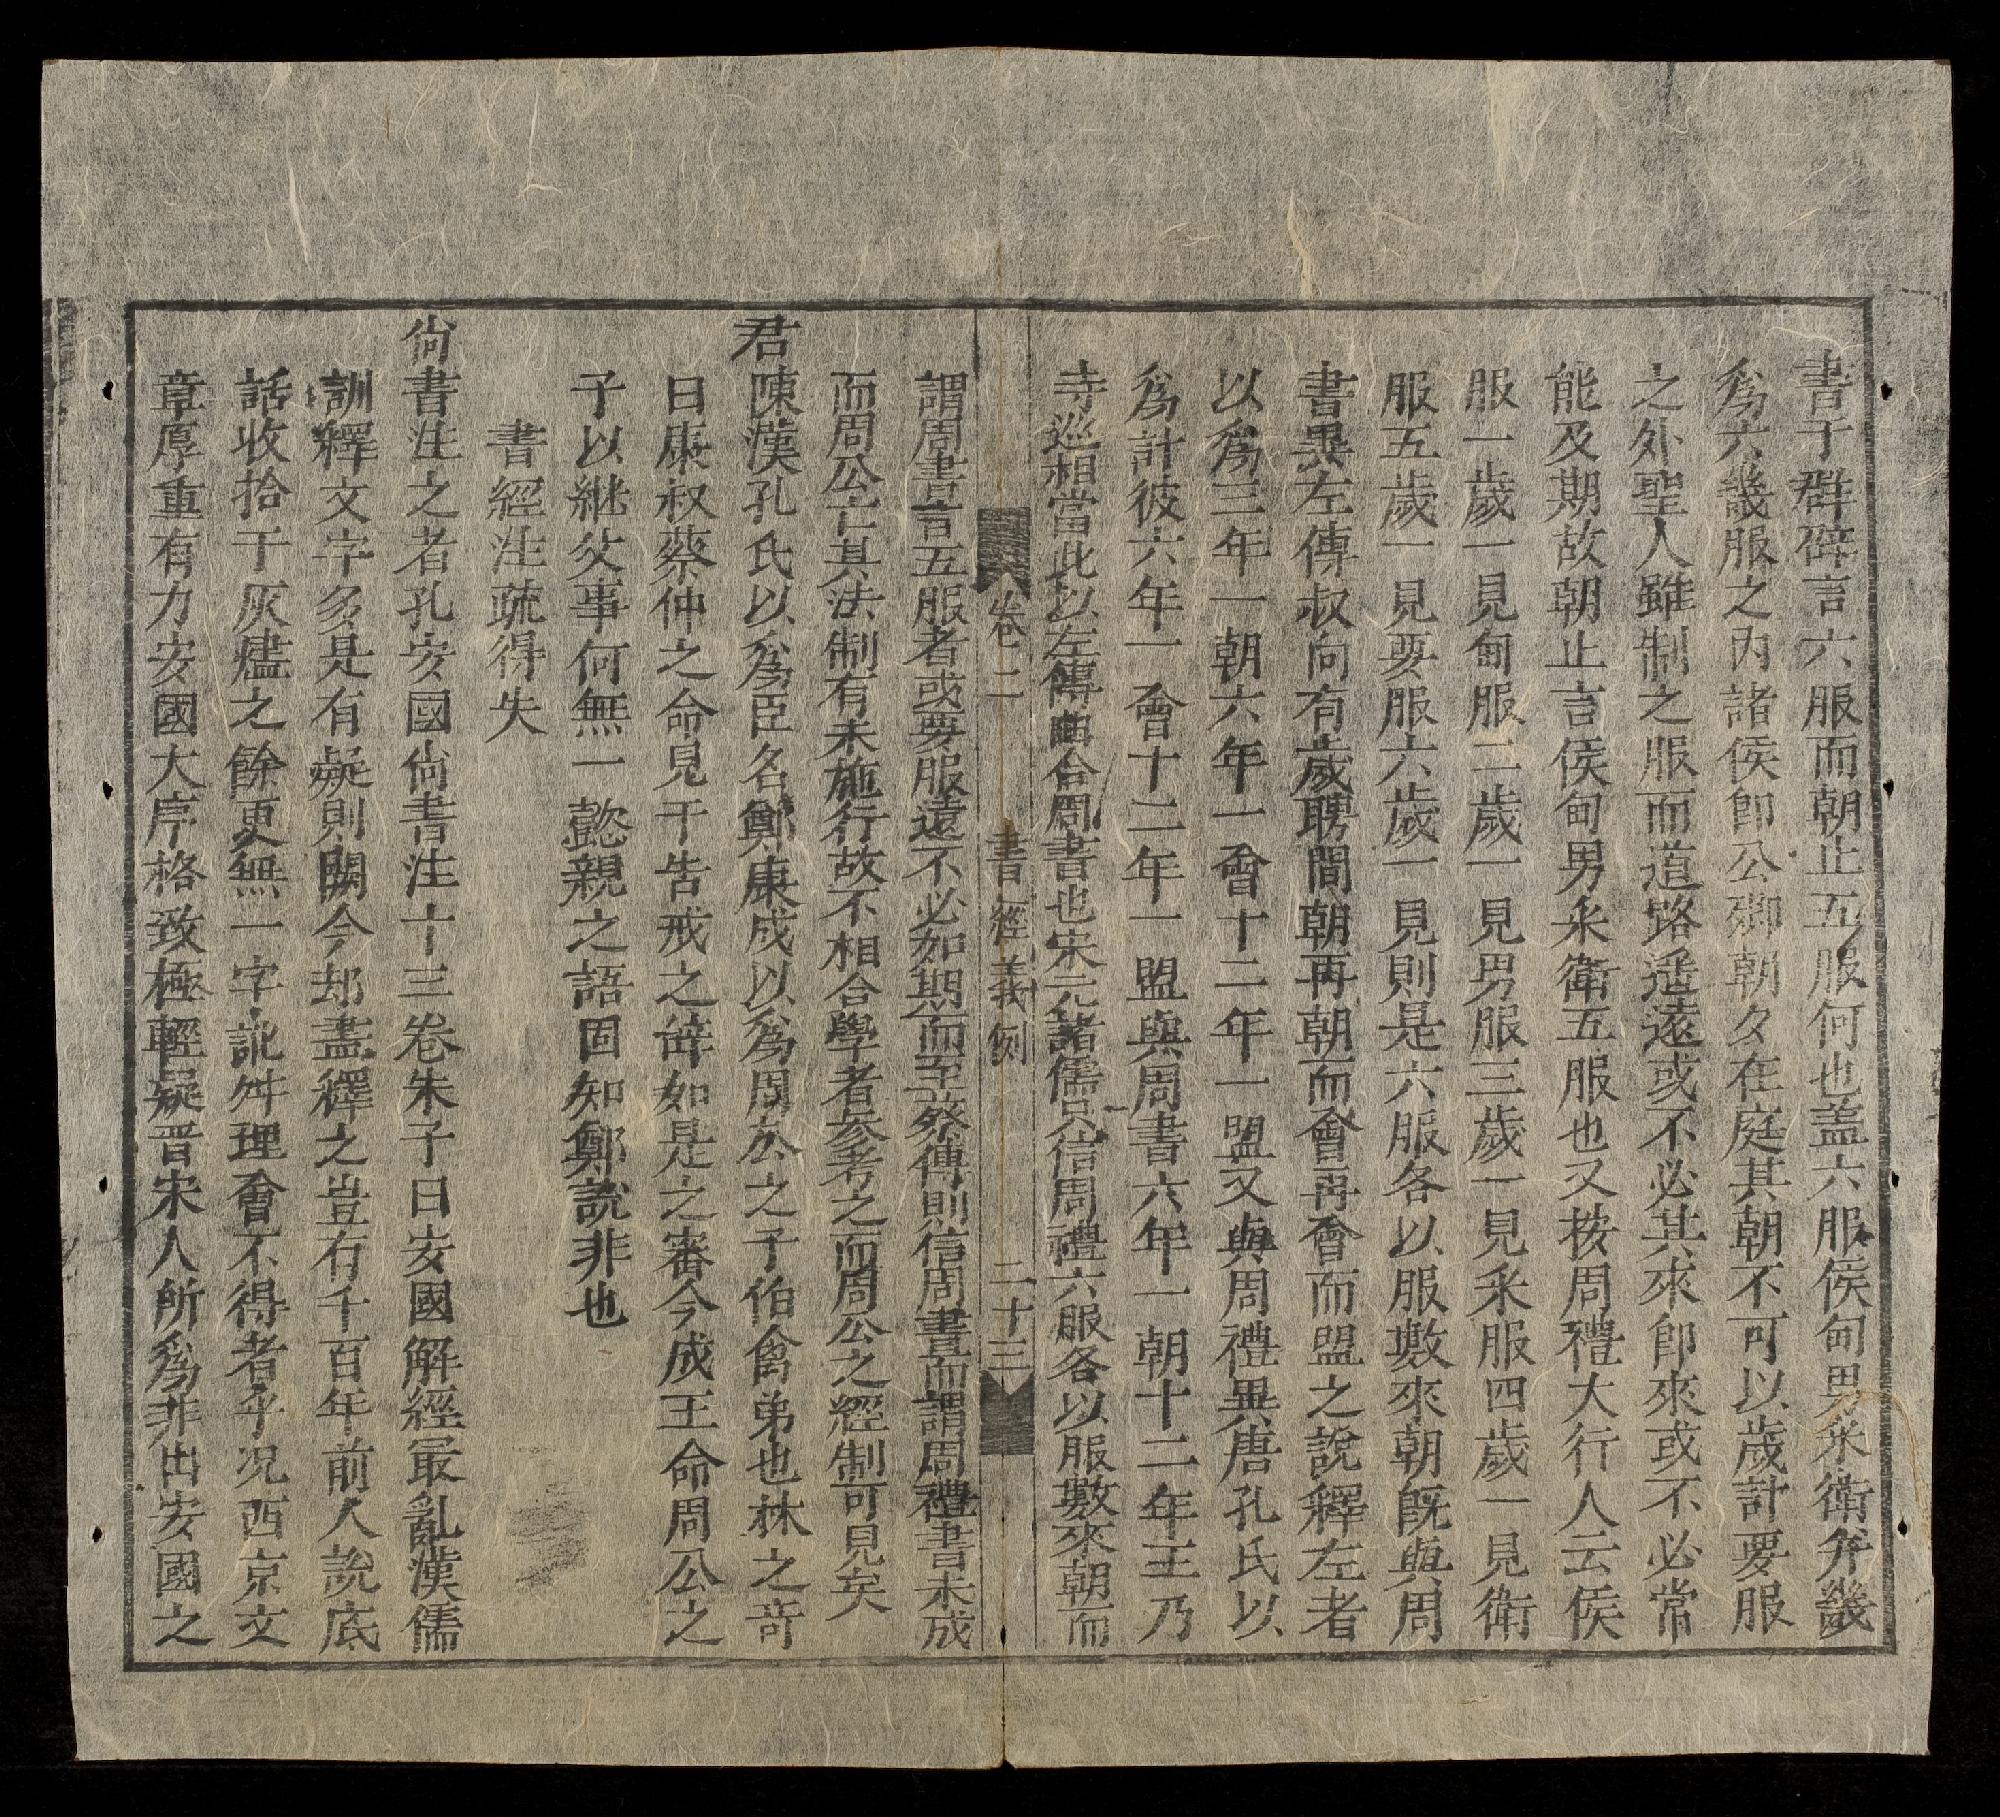 書于群辟言六服而朝止五服何也盖六服侯甸男采衛并畿
爲六畿服之內諸侯卽公卿朝夕在庭其朝不可以歲計要服
之外聖人雖制之服而道路遥遠或不必其來卽來或不必常
能及期故朝止言侯甸男采衛五服也又按周禮大行人云侯
服一歲一見甸服二歲一見男服三歲一見采服四歲一見衛
服五歲一見要服六歲一見則是六服各以服數來朝旣與周
書異左傳叔向有歲聘間朝再朝而會再會而盟之說釋左者
以爲三年一朝六年一會十二年一盟又與周禮異唐孔氏以
爲計彼六年一會十二年一盟與周書六年一朝十二年王乃
寺巡相當此以左傳曲合周書也宋元諸儒只信周禮六服各以服數來朝而
卷二 書經義例 二十三
謂周書言五服者或要服遠不必如期而至蔡傳則信周書而謂周禮書未成
而周公亡其法制有未施行故不相合學者參考之而周公之經制可見矣
君陳漢孔氏以爲臣名鄭康成以爲周公之子伯禽弟也林之奇
曰康叔蔡仲之命見于告戒之辞如是之審今成王命周公之
子以継父事何無一懿親之語固知鄭說非也
書經注疏得失
尙書注之者孔安國尙書注十三卷朱子曰安國解經最亂漢儒
訓釋文字多是有疑則闕今却盡釋之豈有千百年前人說底
話收拾于灰燼之餘更無一字訛舛理會不得者乎况西京文
章厚重有力安國大序格致極輕疑晋宋人所爲非出安國之